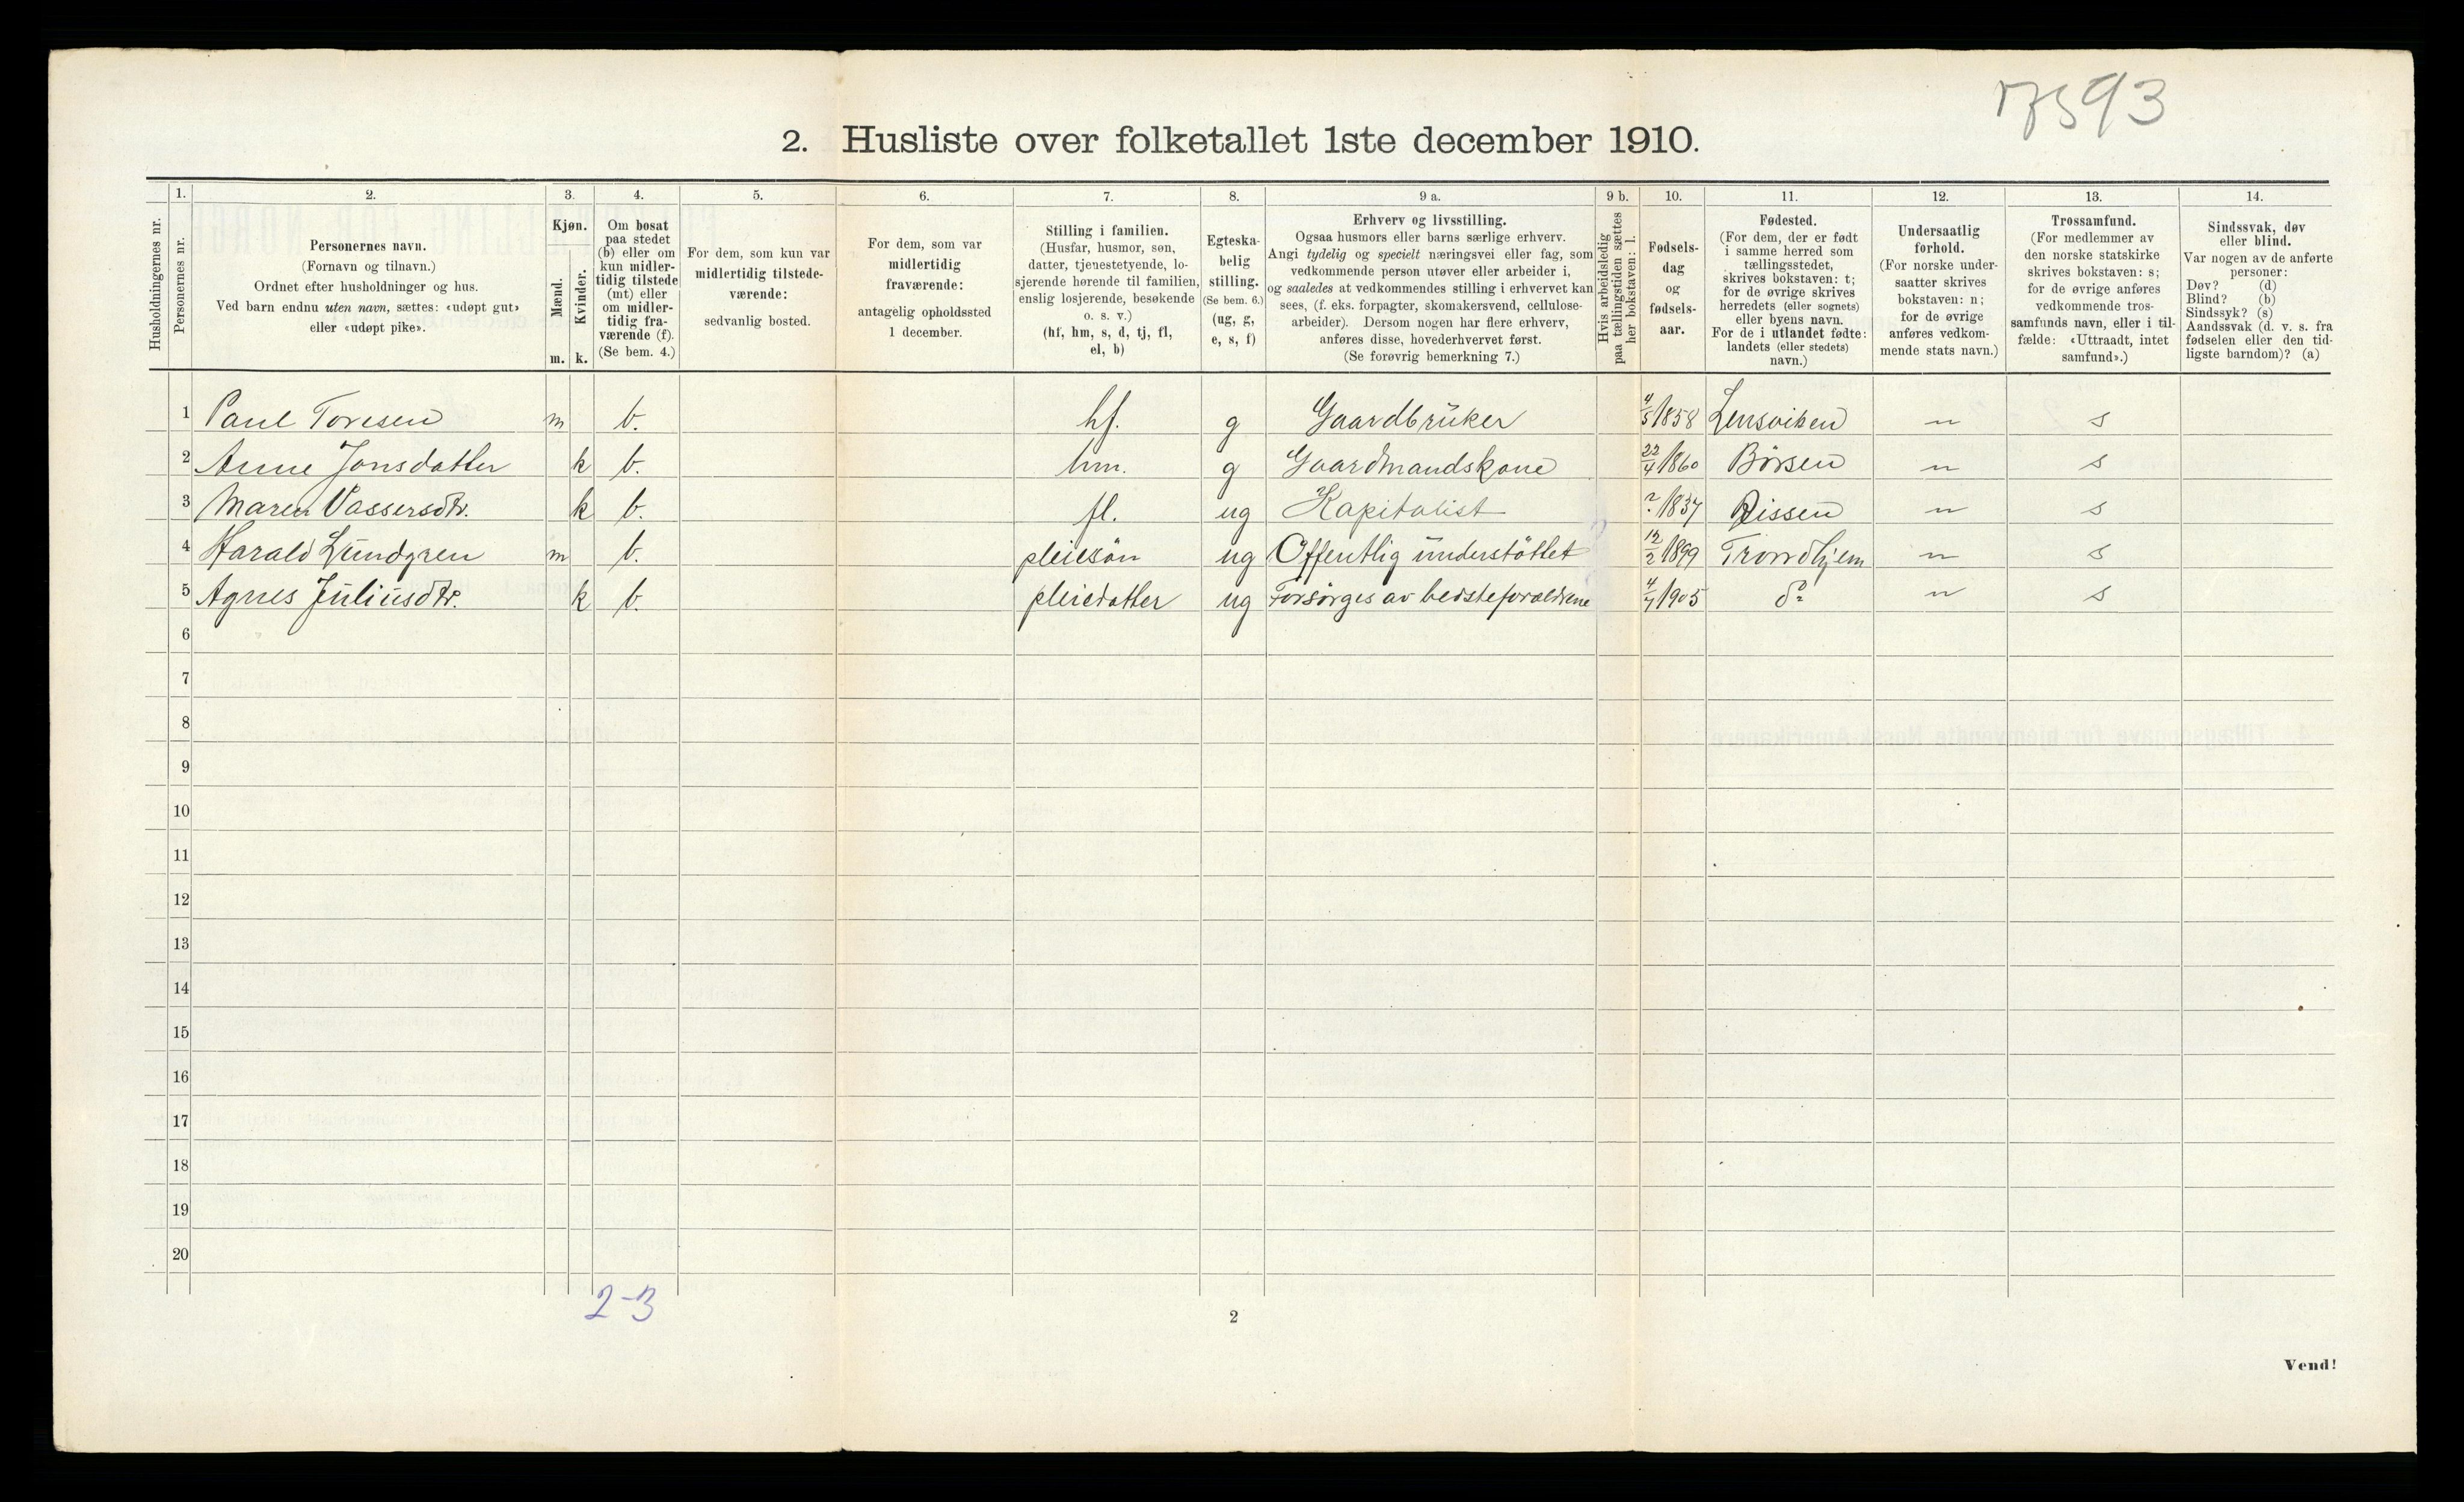 17593
2. Husliste over folketallet 1ste december 1910.
Husholdningernes nr.
1. Personernes nr.
2. Personernes navn.
(Fornavn og tilnavn.)
Ordnet efter husholdninger og hus.
Ved barn endnu uten navn, sættes: «udøpt gut»
eller «udøpt pike».
3. Kjøn.
Mænd. m.
Kvinder. k.
4. Om bosat
paa stedet
(b) eller om
kun midler-
tidig tilstede
(mt) eller
om midler-
tidig fra-
værende (f).
(Se bem. 4.)
5. For dem, som kun var
midlertidig tilstede-
værende:
sedvanlig bosted.
6. For dem, som var
midlertidig
fraværende:
antagelig opholdssted
1 december.
7. Stilling i familien.
(Husfar, husmor, søn,
datter, tjenestetyende, lo-
sjerende hørende til familien,
enslig losjerende, besøkende
o. s. v.)
(hf, hm, s, d, tj, fl,
el, b)
8. Egteska-
belig
stilling.
(Se bem. 6.)
(ug, g,
e, s, f)
9 a. Erhverv og livsstilling.
Ogsaa husmors eller barns særlige erhverv.
Angi tydelig og specielt næringsvei eller fag, som
vedkommende person utøver eller arbeider i,
og saaledes at vedkommendes stilling i erhvervet kan
sees, (f. eks. forpagter, skomakersvend, cellulose-
arbeider). Dersom nogen har flere erhverv,
anføres disse, hovederhvervet først.
(Se forøvrig bemerkning 7.)
9 b. Hvis arbeidsledig
paa tællingstiden sættes
her bokstaven: l.
10. Fødsels-
dag
og
fødsels-
aar.
11. Fødested.
(For dem, der er født
i samme herred som
tællingsstedet,
skrives bokstaven: t;
for de øvrige skrives
herredets (eller sognets)
eller byens navn.
For de i utlandet fødte:
landets (eller stedets)
navn.)
12. Undersaatlig
forhold.
(For norske under-
saatter skrives
bokstaven: n;
for de øvrige
anføres vedkom-
mende stats navn.)
13. Trossamfund.
(For medlemmer av
den norske statskirke
skrives bokstaven: s;
for de øvrige anføres
vedkommende tros-
samfunds navn, eller i til-
fælde: «Uttraadt, intet
samfund».)
14. Sindssvak, døv
eller blind.
Var nogen av de anførte
personer:
Døv? (d)
Blind? (b)
Sindssyk? (s)
Aandssvak (d. v. s. fra
fødselen eller den tid-
ligste barndom)? (a)
1 Paul Toresen m b. hf. g Gaardbrüker 4/5 1858 Lensviken n s
2 Anne Jonsdatter k b. hm. g Gaardmandskone 22/4 1860 Börsen n s
3 Maren Vassersdtr. k b. fl. ug Kapitalist ? 1837 Rissen n s
4 Harald Lundgren m b. pleiesön ug Offentlig understöttet 12/2 1899 Trondhjem n s
5 Agnes Juliusdtr. k b. pleiedatter ug Forsörges av bedsteforældrene 4/7 1905 do n s
6
7
8
9
10
11
12
13
14
15
16
17
18
19
20
2-3
2
Vend!